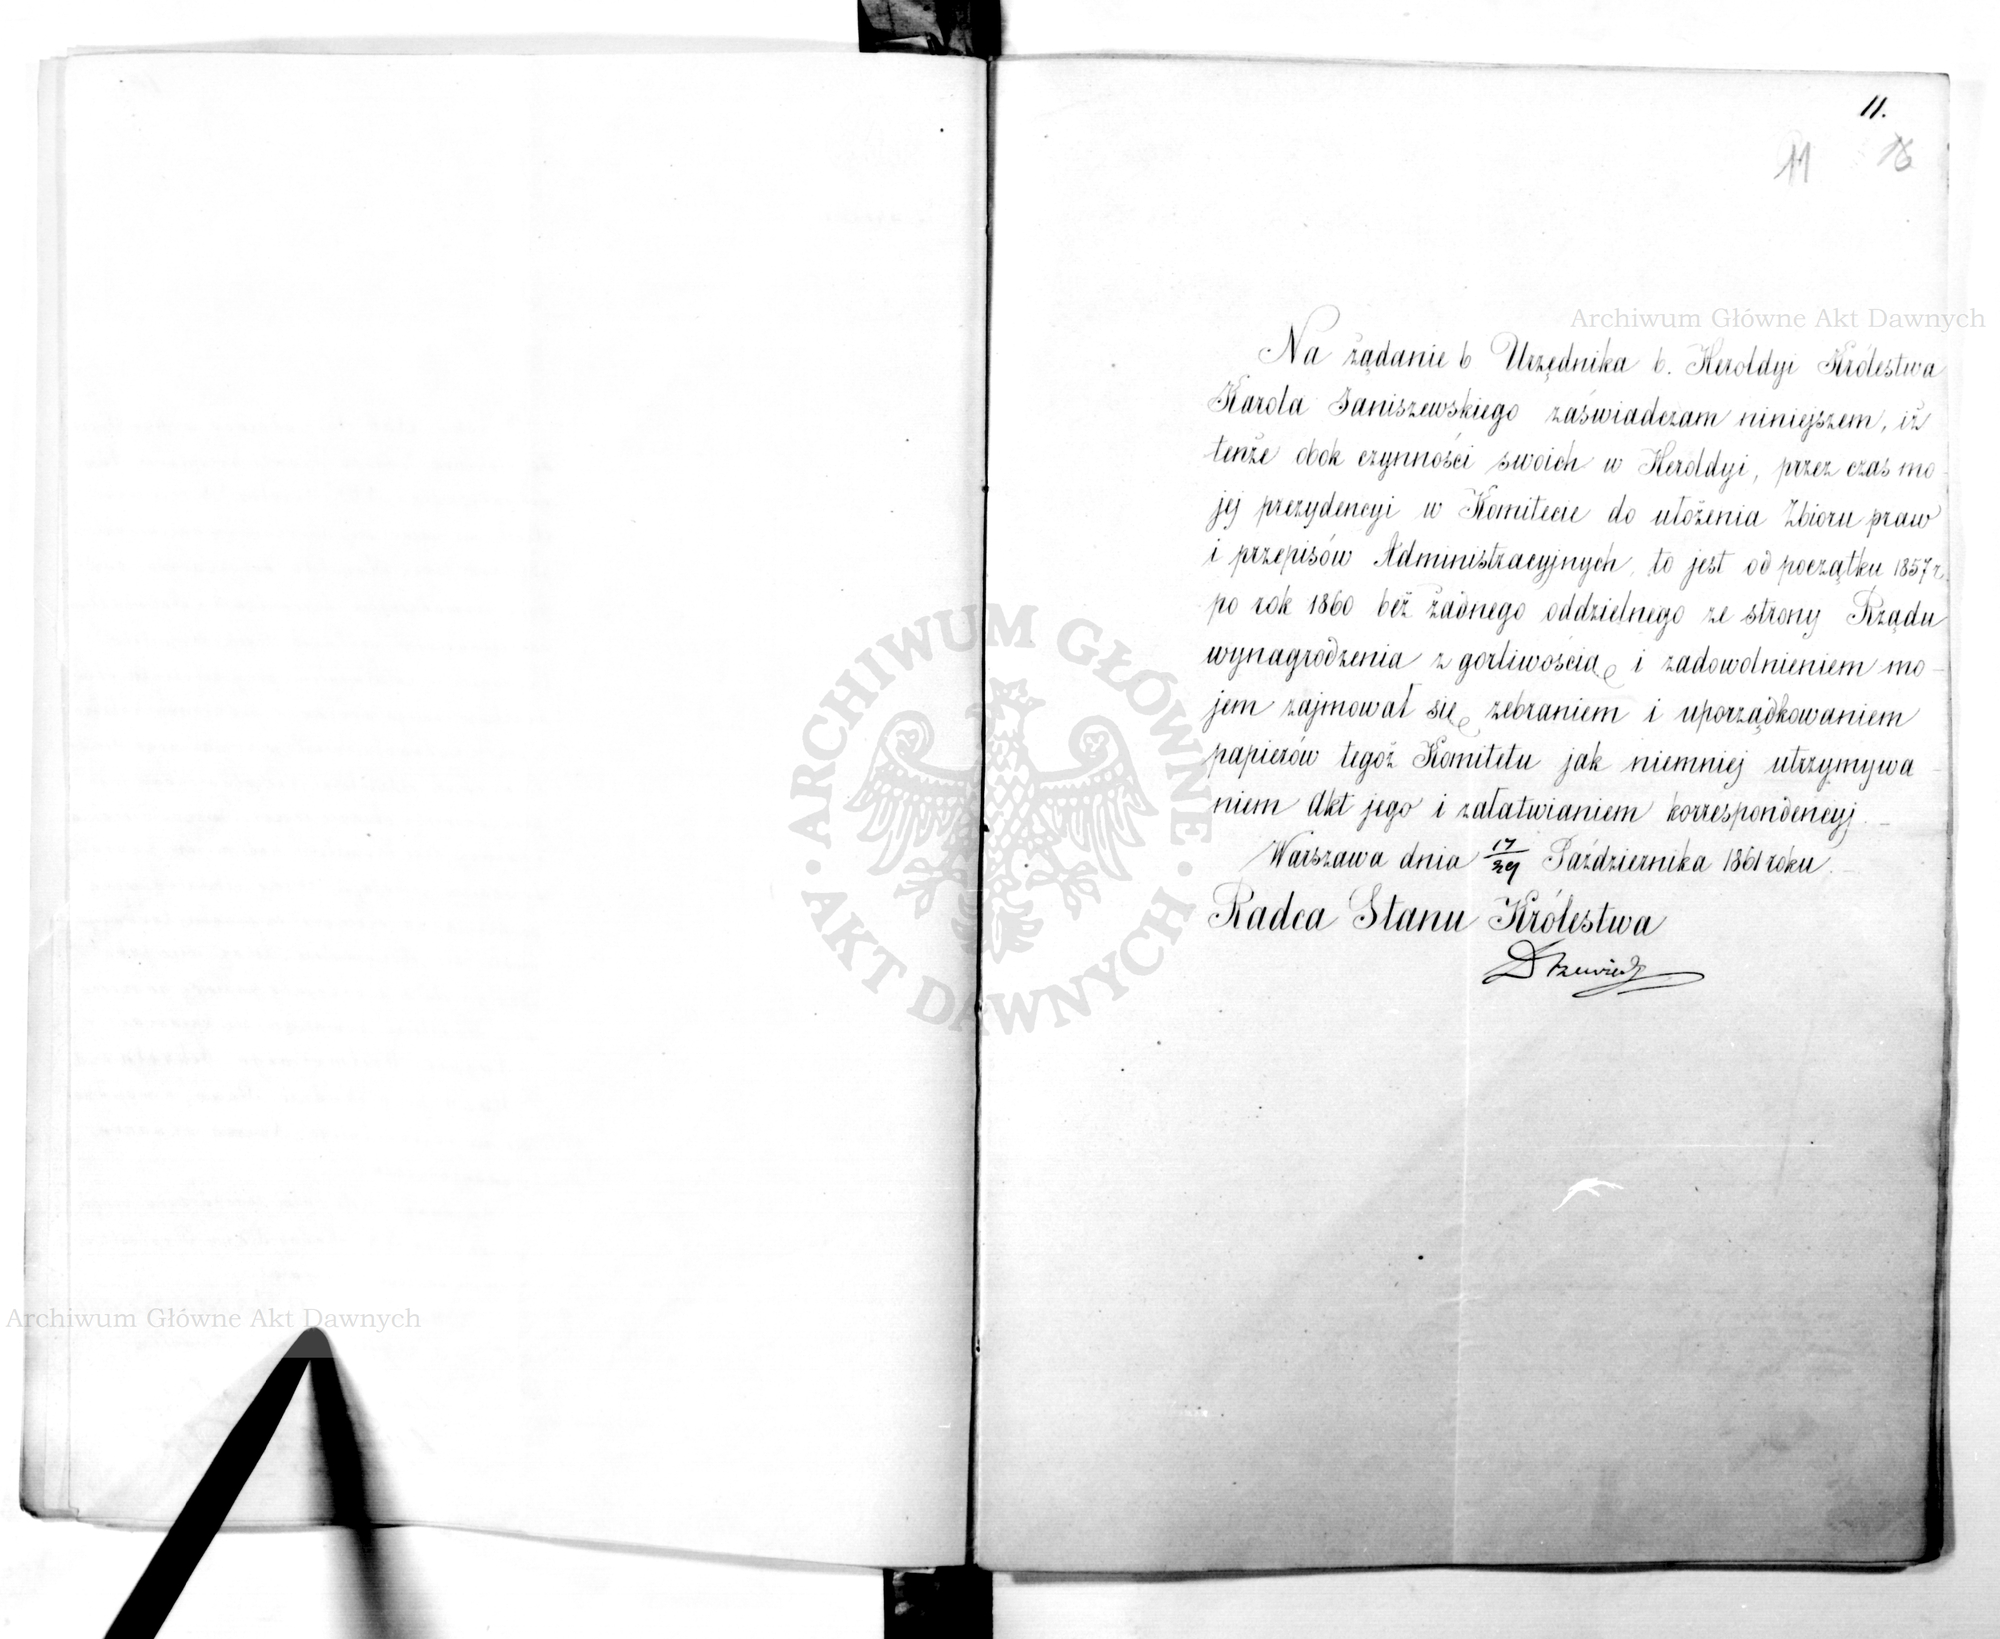 11.
11
Archiwum Główne Akt Dawnych
Na żądanie b Urzędnika b. Heroldyi Królestwa
Karola Janiszewskiego zaświadczam niniejszem, iż
tenże obok czynności swoich w Heroldyi, przez czas mo-
jej prezydencyi w Komitecie do ułożenia Zbioru praw
i przepisów Administracyjnych, to jest od początku 1857 r.
po rok 1860 bez żadnego oddzielnego ze strony Rządu
wynagrodzenia z gorliwością i zadowolnieniem mo-
jem zajmował się zebraniem i uporządkowaniem
papierów tegoż Komitetu jak niemniej utrzymywa-
niem Akt jego i załatwianiem korrespondencyj.
Warszawa dnia 17/29 Października 1861 roku.
Radca Stanu Królestwa
ARCHIWUM GŁÓWNE · AKT DAWNYCH ·
Archiwum Główne Akt Dawnych